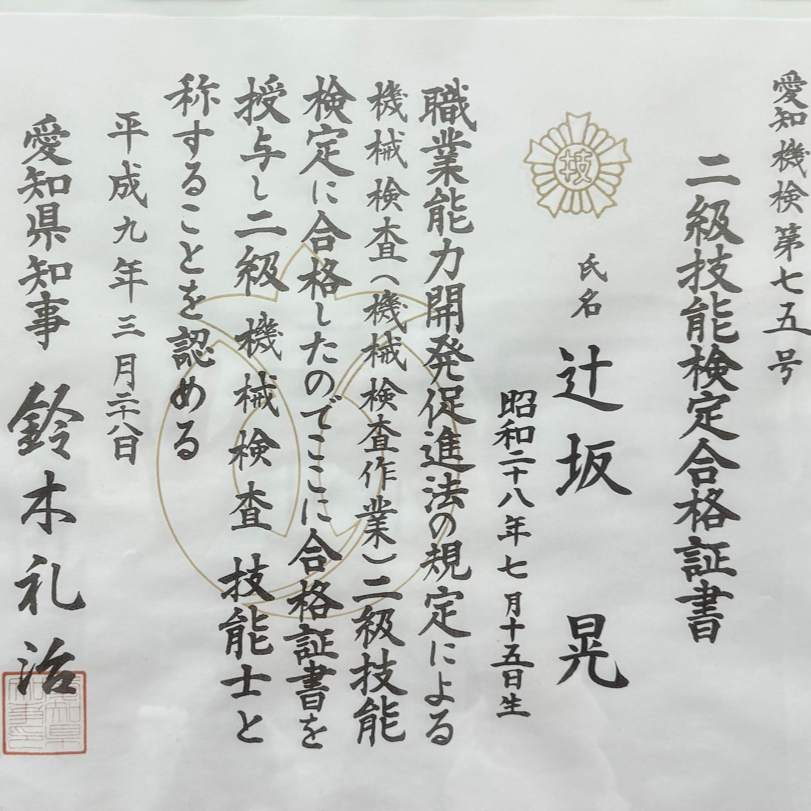 愛知機検第七五号
二級技能検定合格証書
技
氏名 辻坂 晃
昭和二十八年七月十五日生
職業能力開発促進法の規定による
機械検査(機械検査作業)二級技能
検定に合格したのでここに合格証書を
授与し二級 機械検査 技能士と
称することを認める
平成九年三月二十八日
愛知県知事 鈴木礼治